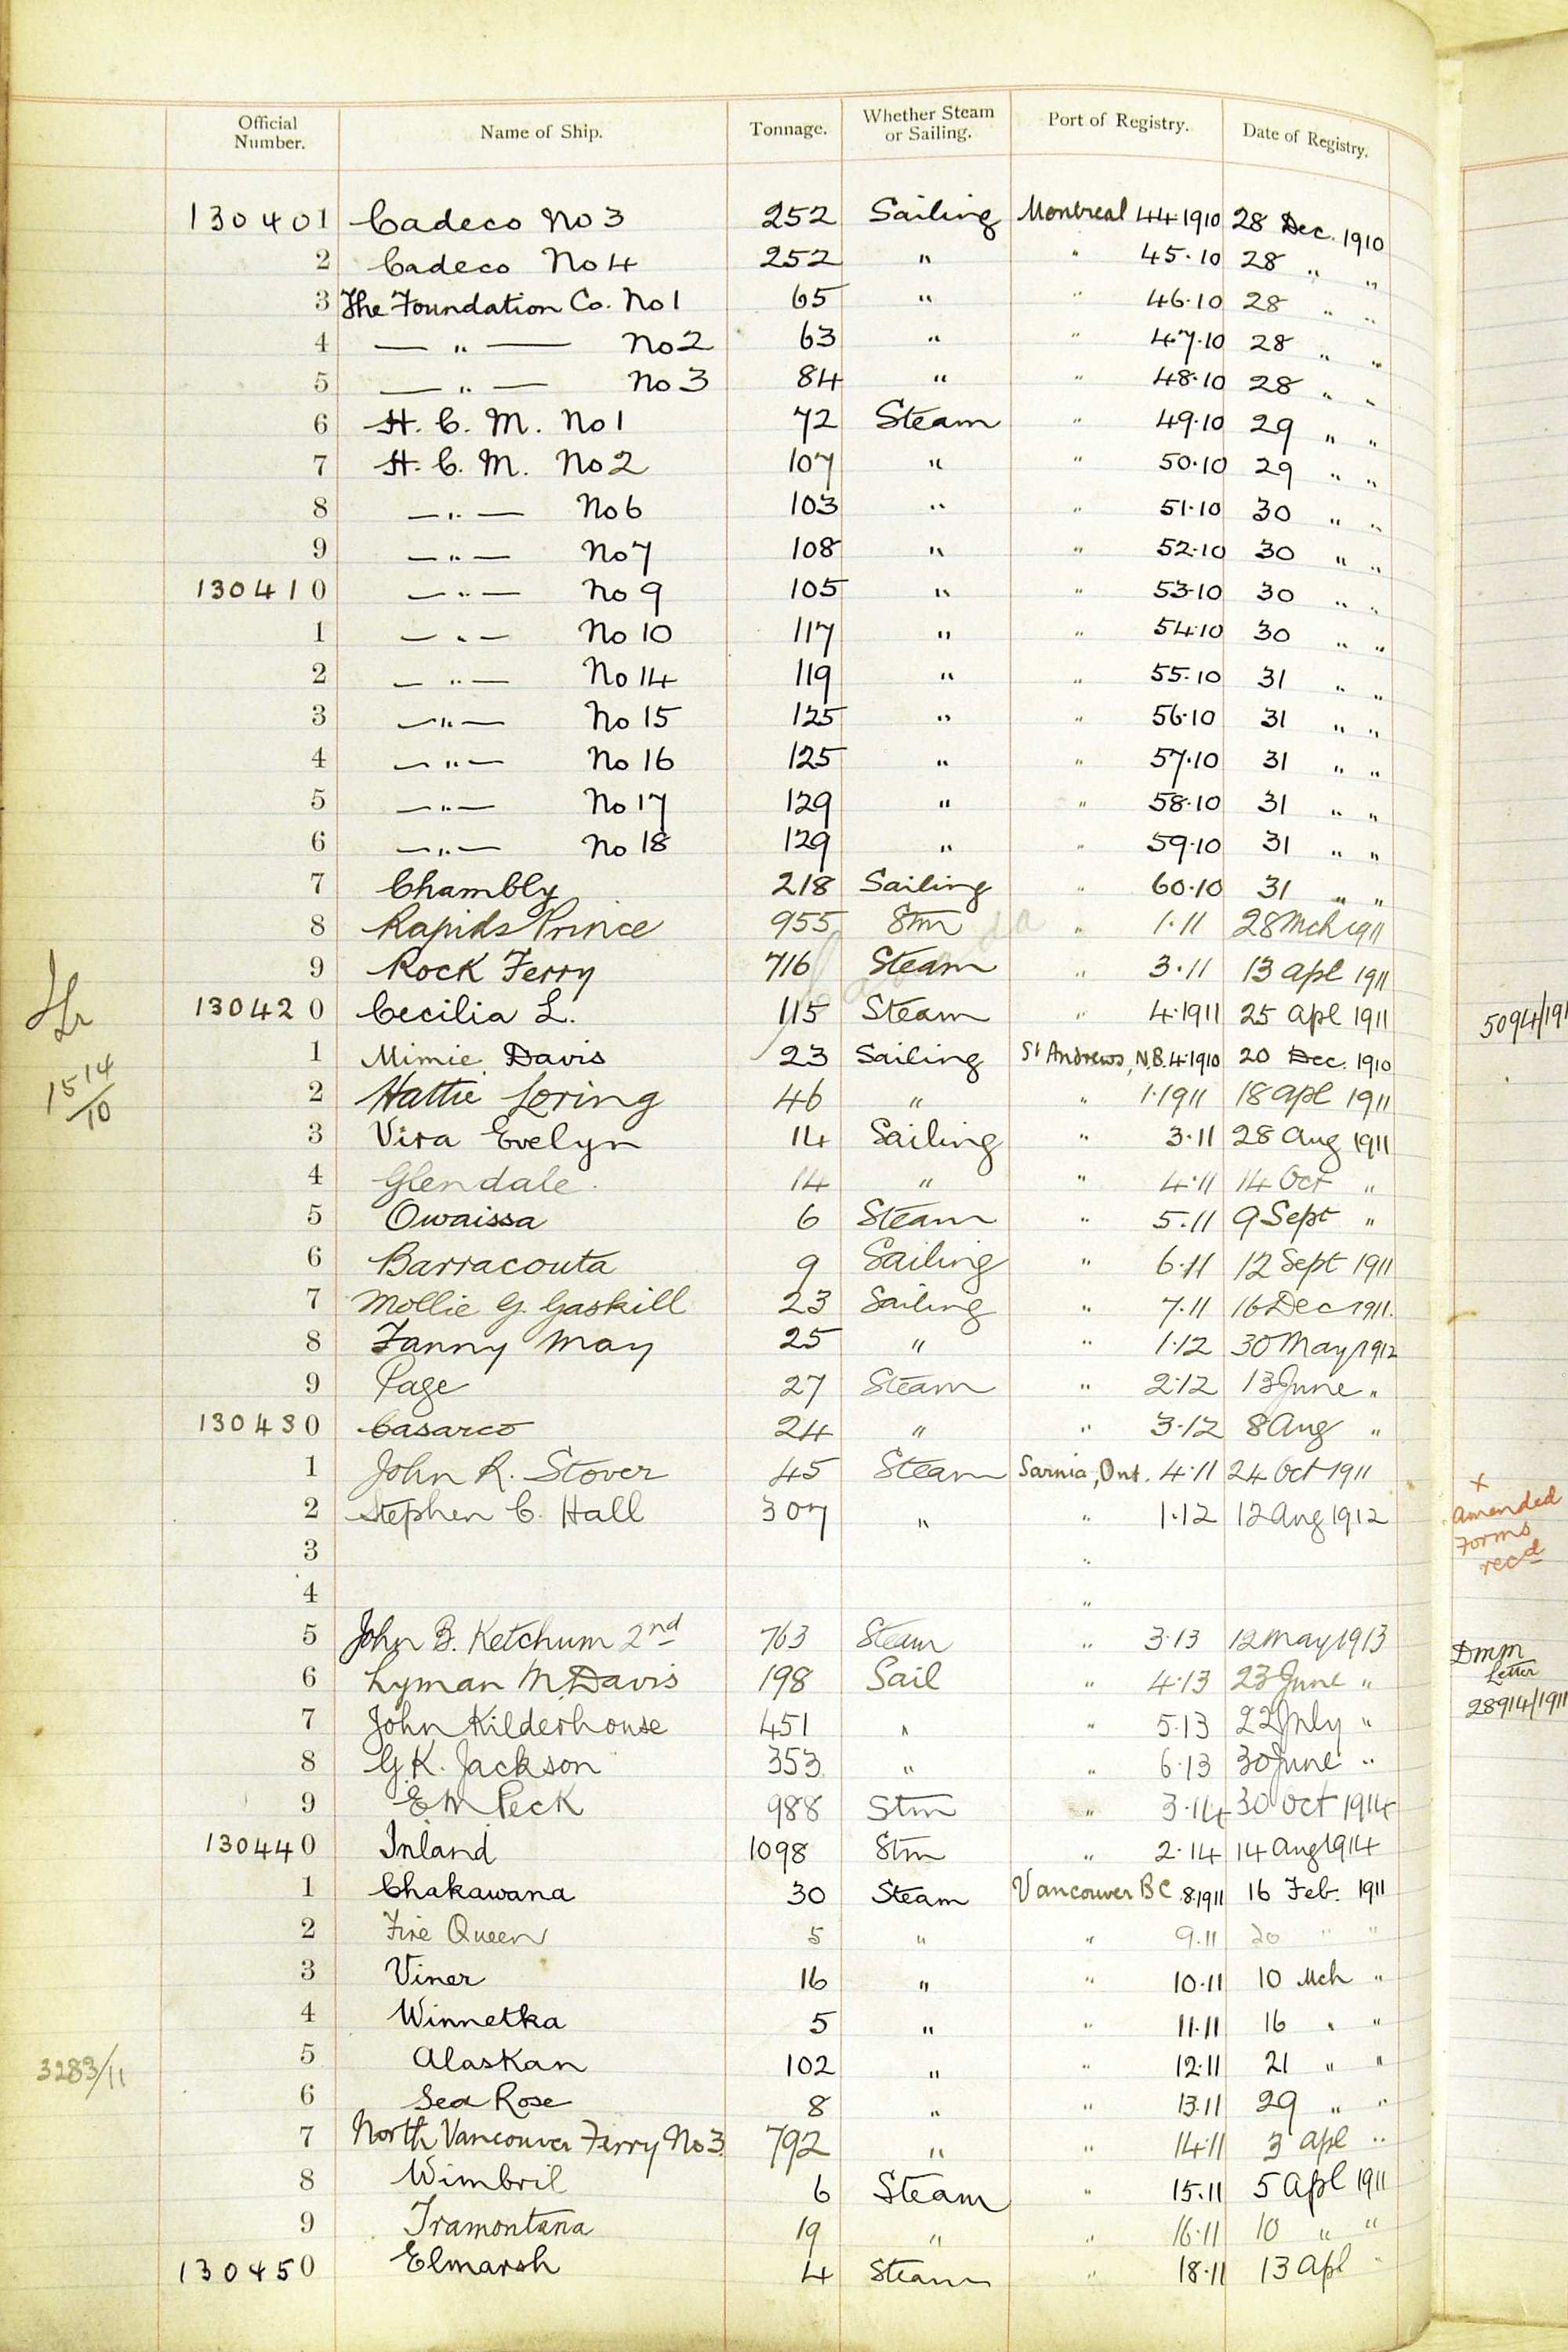 Official Number. Name of Ship. Tonnage. Whether Steam or Sailing. Port of Registry. Date of Registry.
130401 Cadeco No 3 252 Sailing Montreal 44·1910 28 Dec. 1910
2 Cadeco No 4 252 " " 45·10 28 " "
3 The Foundation Co. No 1 65 " " 46·10 28 " "
4 — " — No 2 63 " " 47·10 28 " "
5 — " — No 3 84 " " 48·10 28 " "
6 H. C. M. No 1 72 Steam " 49·10 29 " "
7 H. C. M. No 2 107 " " 50·10 29 " "
8 — " — No 6 103 " " 51·10 30 " "
9 — " — No 7 108 " " 52·10 30 " "
130410 — " — No 9 105 " " 53·10 30 " "
1 — " — No 10 117 " " 54·10 30 " "
2 — " — No 14 119 " " 55·10 31 " "
3 — " — No 15 125 " " 56·10 31 " "
4 — " — No 16 125 " " 57·10 31 " "
5 — " — No 17 129 " " 58·10 31 " "
6 — " — No 18 129 " " 59·10 31 " "
7 Chambly 218 Sailing " 60·10 31 " "
8 Rapids Prince 955 Stm " 1·11 28 Mch 1911
9 Rock Ferry 716 Steam " 3·11 13 Apl 1911
130420 Cecilia L. 115 Steam " 4·1911 25 Apl 1911
5094/191
1 Mimie Davis 23 Sailing St Andrews, N.B. 4·1910 20 Dec. 1910
1514/10
2 Hattie Loring 46 " " 1·1911 18 Apl 1911
3 Vira Evelyn 14 Sailing " 3·11 28 Aug 1911
4 Glendale. 14 " " 4·11 14 Oct "
5 Owaissa 6 Steam " 5·11 9 Sept "
6 Barracouta 9 Sailing " 6·11 12 Sept 1911
7 Mollie G. Gaskill 23 Sailing " 7·11 16 Dec 1911.
8 Fanny May 25 " " 1·12 30 May 1912
9 Page 27 Steam " 2·12 13 June "
130430 Casarco 24 " " 3·12 8 Aug "
1 John R. Stover 45 Steam Sarnia, Ont. 4·11 24 Oct 1911
2 Stephen C. Hall 307 " " 1·12 12 Aug 1912
x
Amended
Forms
recd
3 "
4 "
5 John B. Ketchum 2nd 763 Steam " 3·13 12 May 1913
Dmm
Letter
28914/1911
6 Lyman M. Davis 198 Sail " 4·13 23 June "
7 John Kilderhouse 451 " " 5·13 22 July "
8 G. K. Jackson 353 " " 6·13 30 June "
9 E M Peck 988 Stm " 3·14 30 Oct 1914
130440 Inland 1098 Stm " 2·14 14 Aug 1914
1 Chakawana 30 Steam Vancouver BC 8·1911 16 Feb. 1911
2 Fire Queen 5 " " 9·11 20 " "
3 Viner 16 " " 10·11 10 Mch "
4 Winnetka 5 " " 11·11 16 " "
5 Alaskan 102 " " 12·11 21 " "
3283/11
6 Sea Rose 8 " " 13·11 29 " "
7 North Vancouver Ferry No 3 792 " " 14·11 3 Apl "
8 Wimbril 6 Steam " 15·11 5 Apl 1911
9 Tramontana 19 " " 16·11 10 " "
130450 Elmarsh 4 Steam " 18·11 13 Apl "